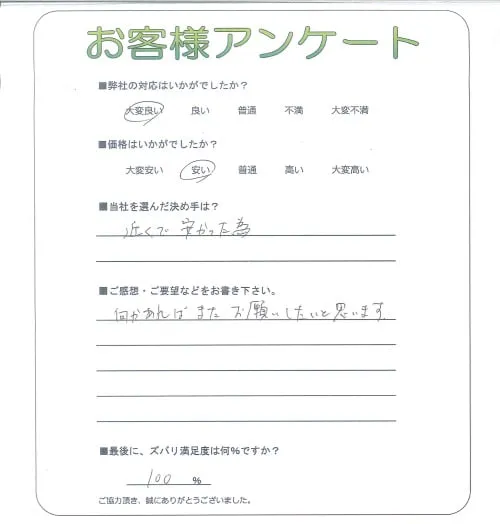 お客様アンケート
■弊社の対応はいかがでしたか？
大変良い 良い 普通 不満 大変不満
■価格はいかがでしたか？
大変安い 安い 普通 高い 大変高い
■当社を選んだ決め手は？
近くで 安かった為
■ご感想・ご要望などをお書き下さい。
何かあれば また お願いしたいと思います
■最後に、ズバリ満足度は何％ですか？
100 ％
ご協力頂き、誠にありがとうございました。